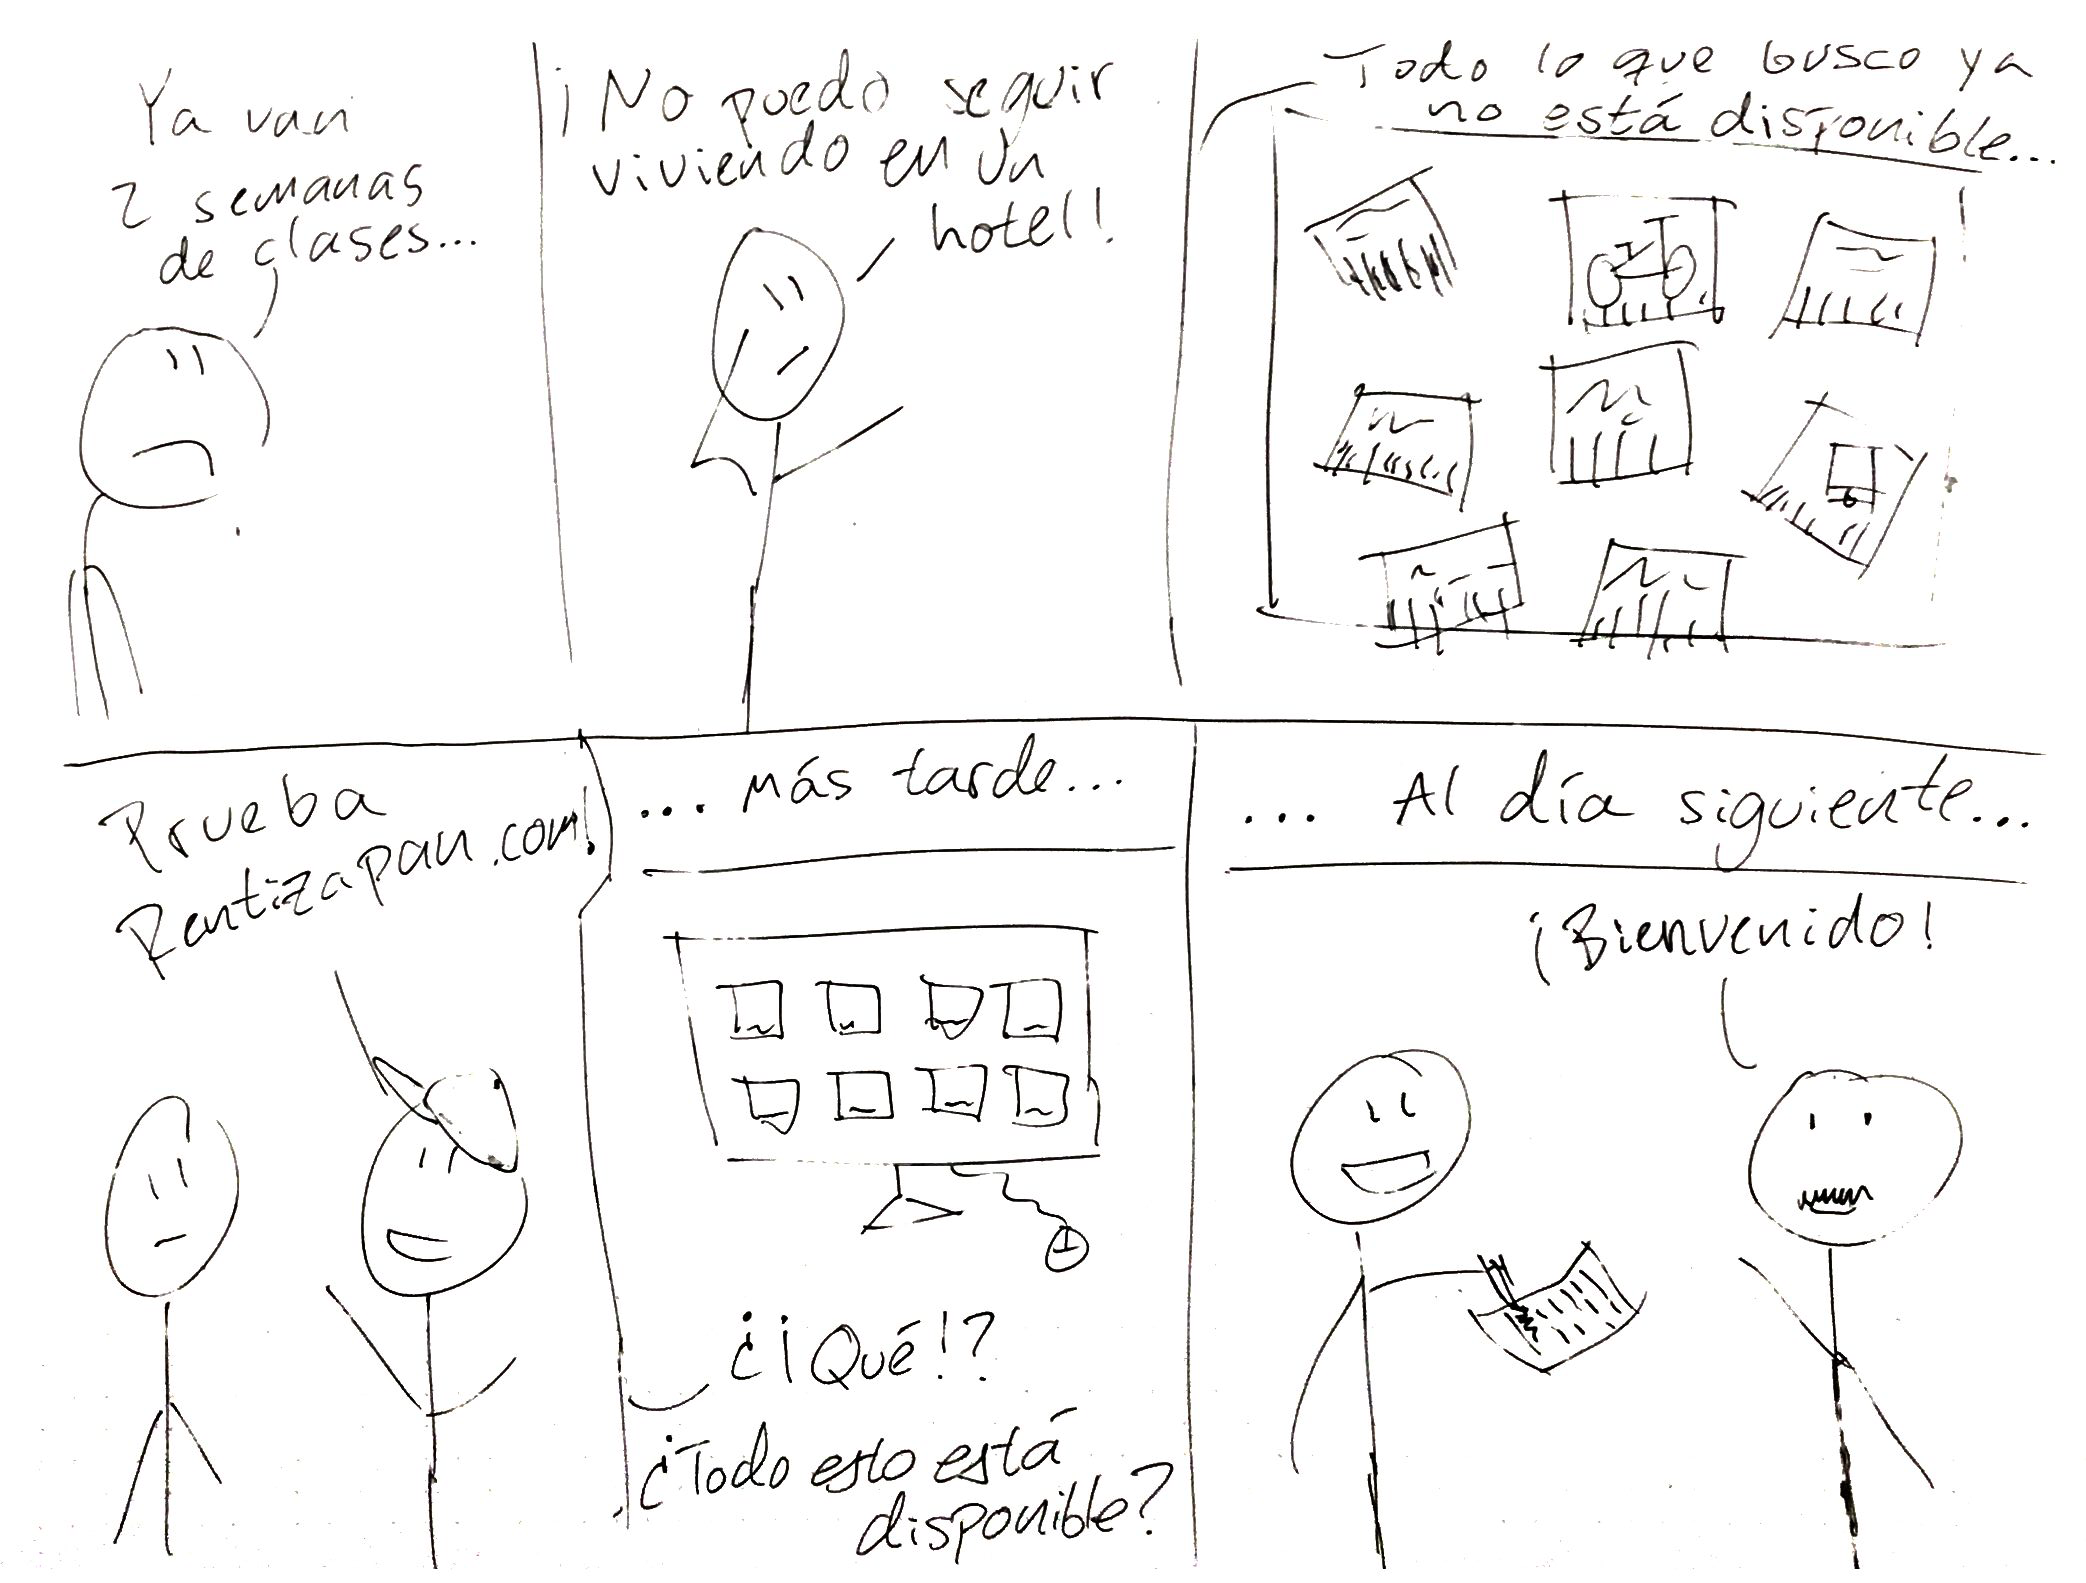 Ya van
2 semanas
de clases...
¡No puedo seguir
viviendo en un
hotel!
Todo lo que busco ya
no está disponible...
Prueba
Rentizapan.com!
... Más tarde...
¿¡Qué!?
¿Todo esto está
disponible?
... Al día siguiente...
¡Bienvenido!